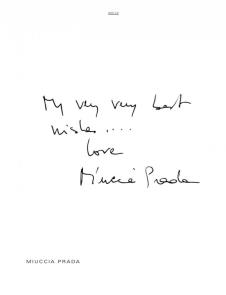 My very very best
wishes ....
love
Miuccia Prada
MIUCCIA PRADA